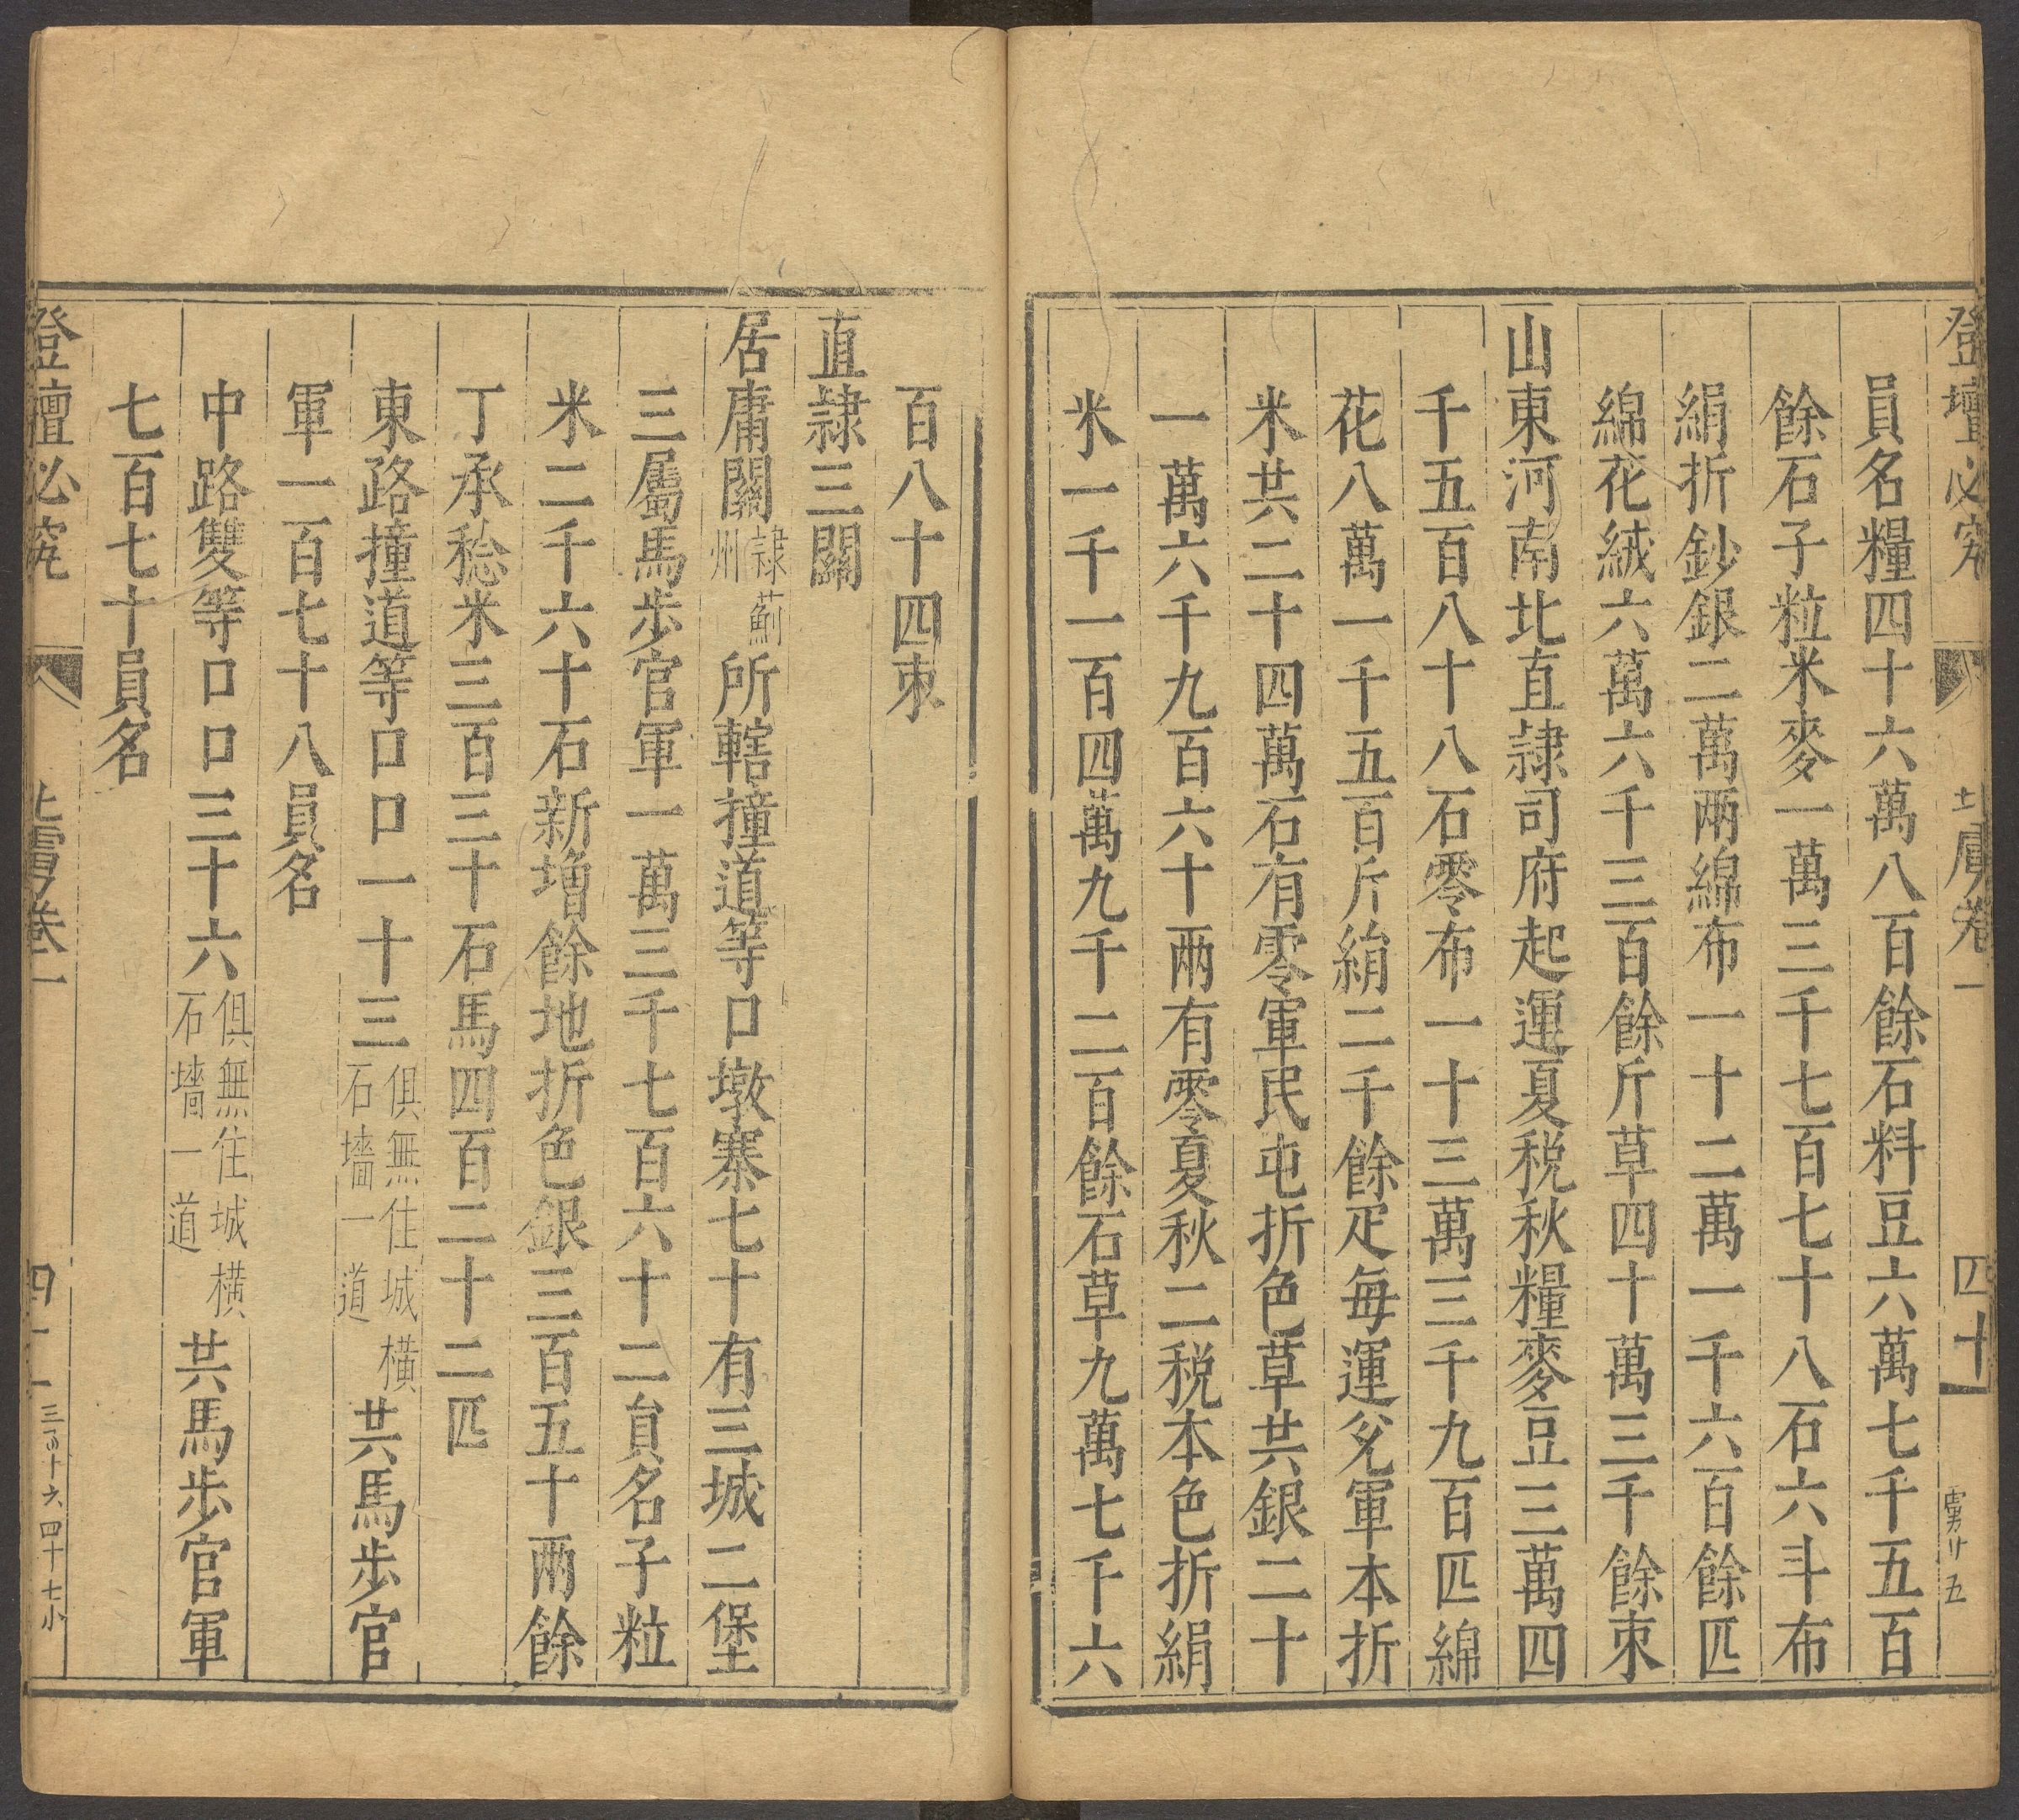 登壇必究
卷一
四十
員名糧四十六萬八百餘石料豆六萬七千五百
餘石子粒米麥一萬三千七百七十八石六斗布
絹折鈔銀二萬兩綿布一十二萬一千六百餘匹
綿花絨六萬六千三百餘斤草四十萬三千餘束
山東河南北直隷司府起運夏税秋糧麥豆三萬四
千五百八十八石零布一十三萬三千九百匹綿
花八萬一千五百斤絹二千餘疋每運兌軍本折
米共二十四萬石有零軍民屯折色草共銀二十
一萬六千九百六十兩有零夏秋二税本色折絹
米一千一百四萬九千二百餘石草九萬七千六
百八十四束
直隷三關
居庸關隷薊州所轄撞道等口墩寨七十有三城二堡
三屬馬步官軍一萬三千七百六十二員名子粒
米二千六十石新增餘地折色銀三百五十兩餘
丁承稔米三百三十石馬四百二十二匹
東路撞道等口口一十三俱無住城橫石墻一道共馬步官
軍一百七十八員名
中路雙等口口三十六俱無住城橫石墻一道共馬步官軍
七百七十員名
登壇必究
卷一